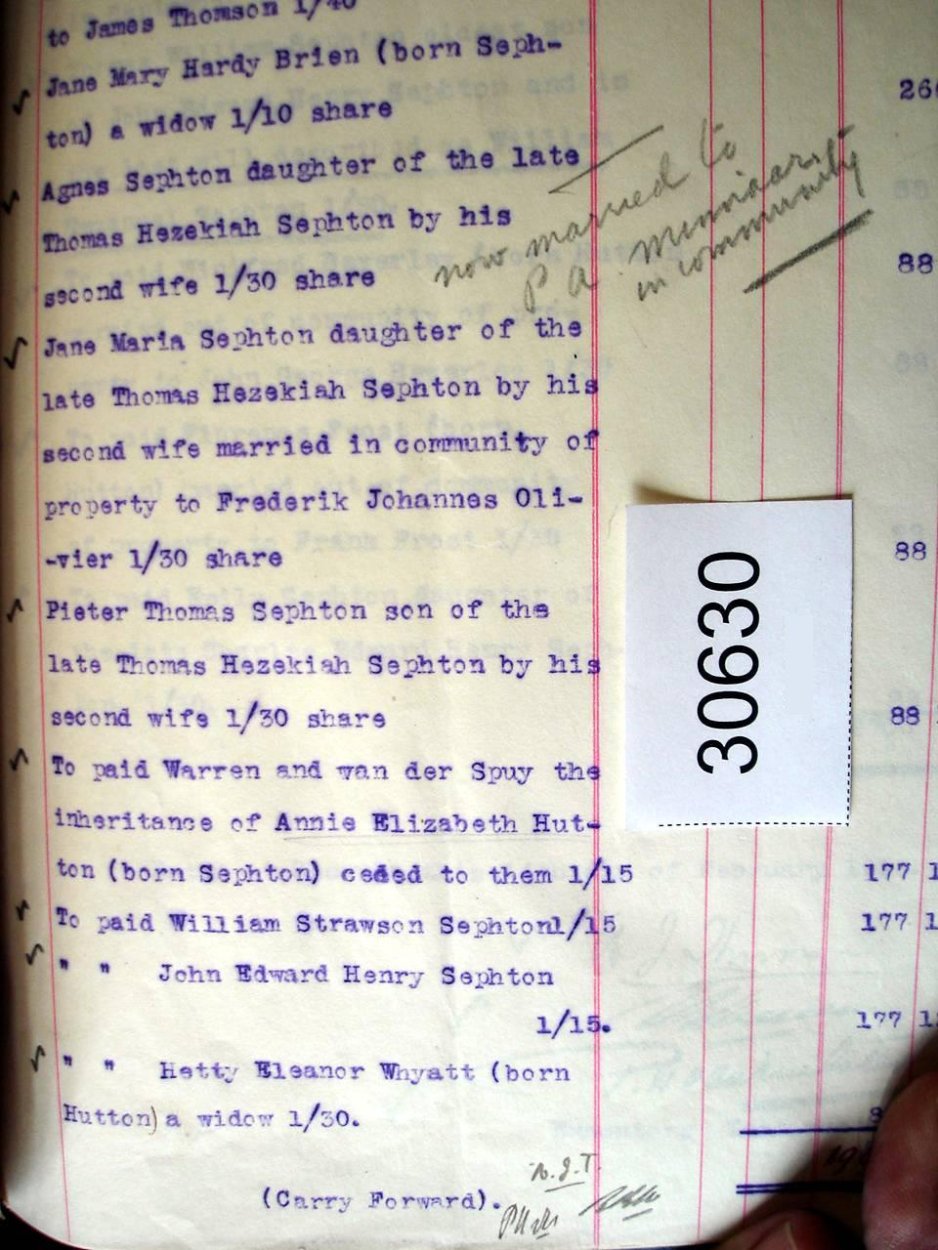 to James Thomson 1/40
Jane Mary Hardy Brien (born Seph-
ton) a widow 1/10 share 266
Agnes Sephton daughter of the late
Thomas Hezekiah Sephton by his
second wife 1/30 share 88
now married to
P A
in community
Jane Maria Sephton daughter of the
late Thomas Hezekiah Sephton by his
second wife married in community of
property to Frederik Johannes Oli-
-vier 1/30 share 88
Pieter Thomas Sephton son of the
late Thomas Hezekiah Sephton by his
second wife 1/30 share 88
30630
To paid Warren and van der Spuy the
inheritance of Annie Elizabeth Hut-
ton (born Sephton) ceded to them 1/15 177 1
To paid William Strawson Sephton1/15 177 1
" " John Edward Henry Sephton
1/15. 177 1
" " Hetty Eleanor Whyatt (born
Hutton) a widow 1/30. 8
(Carry Forward).